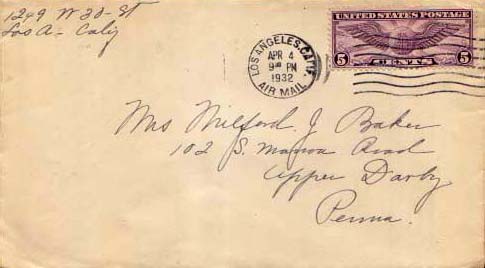 1249 W 30- St
Los A- Calif
UNITED STATES POSTAGE
5 CENTS 5
LOS ANGELES, CALIF.
APR 4
9 PM
1932
AIR MAIL
Mrs Milford J Baker
102 S. Manoa Road
Upper Darby
Penna.